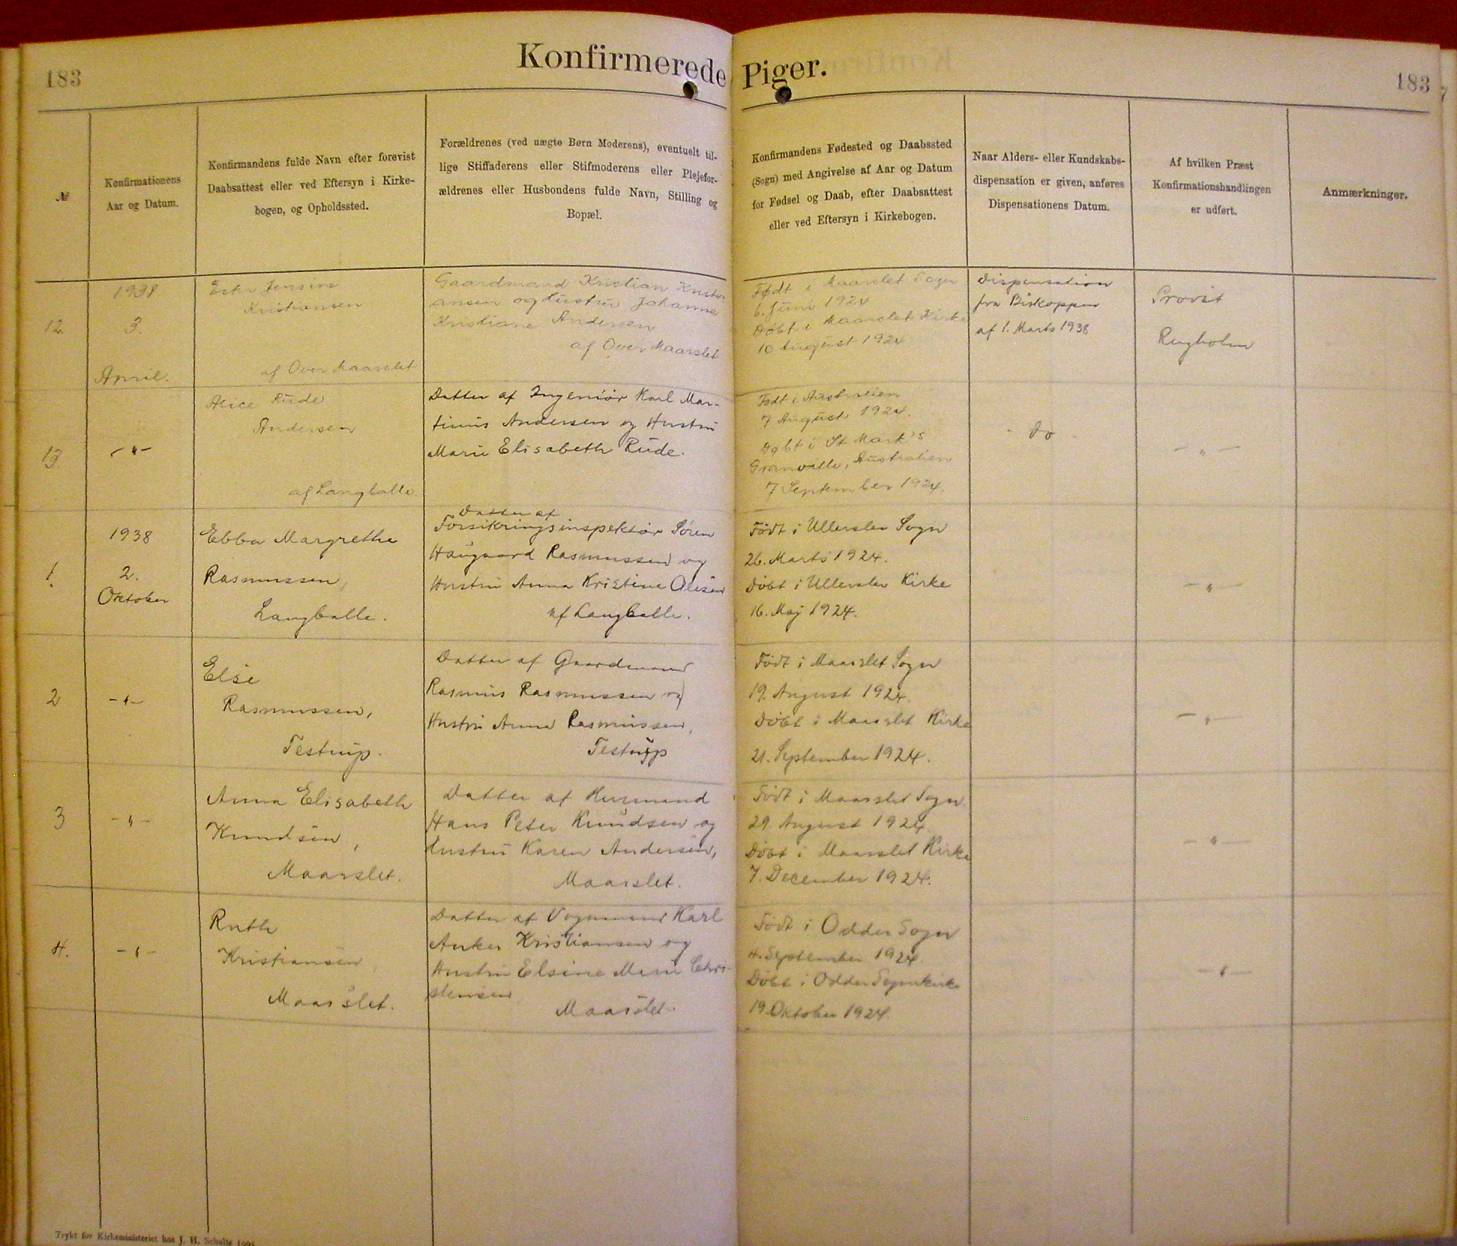 183
Konfirmerede Piger.
183
№
Konfirmationens
Aar og Datum.
Konfirmandens fulde Navn efter forevist
Daabsattest eller ved Eftersyn i Kirke-
bogen, og Opholdssted.
Forældrenes (ved uægte Børn Moderens), eventuelt til-
lige Stiffaderens eller Stifmoderens eller Plejefor-
ældrenes eller Husbondens fulde Navn, Stilling og
Bopæl.
Konfirmandens Fødested og Daabssted
(Sogn) med Angivelse af Aar og Datum
for Fødsel og Daab, efter Daabsattest
eller ved Eftersyn i Kirkebogen.
Naar Alders- eller Kundskabs-
dispensation er given, anføres
Dispensationens Datum.
Af hvilken Præst
Konfirmationshandlingen
er udført.
Anmærkninger.
12
1938
3.
April.
Ester Jensine
Kristiansen
af Over Maarslet
Gaardmand Kristian Kristi-
ansen og Hustru Johanne
Kristiane Andersen
af Over Maarslet
Født i Maarslet Sogn
6. Juni 1924
Døbt i Maarslet Kirke
10 August 1924
Dispensation
fra Biskoppen
af 1. Marts 1938
Provst
Rugholm
13
-"-
Alice Rude
Andersen
af Langballe
Datter af Ingeniør Karl Mar-
tinus Andersen og Hustru
Marie Elisabeth Rude.
Født i Australien
7 August 1924.
Døbt i St Mark's
Granville, Australien
7 September 1924.
do
-"-
1.
1938
2.
Oktober
Ebba Margrethe
Rasmussen,
Langballe.
Datter af
Forsikringsinspektør Søren
Haugaard Rasmussen og
Hustru Anna Kristine Olesen
af Langballe.
Født i Ullerslev Sogn
26. Marts 1924.
Døbt i Ullerslev Kirke
16. Maj 1924.
-"-
2
-"-
Else
Rasmussen,
Testrup.
Datter af Gaardmand
Rasmus Rasmussen og
Hustru Anna Rasmussen,
Testrup
Født i Maarslet Sogn
19. August 1924.
Døbt i Maarslet Kirke
21. September 1924.
-"-
3
-"-
Anna Elisabeth
Knudsen,
Maarslet.
Datter af Husmand
Hans Peter Knudsen og
Hustru Karen Andersen,
Maarslet.
Født i Maarslet Sogn.
29. August 1924.
Døbt i Maarslet Kirke
7. December 1924.
-"-
4.
-"-
Ruth
Kristiansen
Maarslet.
Datter af Vognmand Karl
Anker Kristiansen og
Hustru Elsine Marie Chri-
stensen
Maarslet
Født i Odder Sogn
4. September 1924
Døbt i Odder Sognekirke
19. Oktober 1924.
-"-
Trykt for Kirkeministeriet hos J. H. Schultz